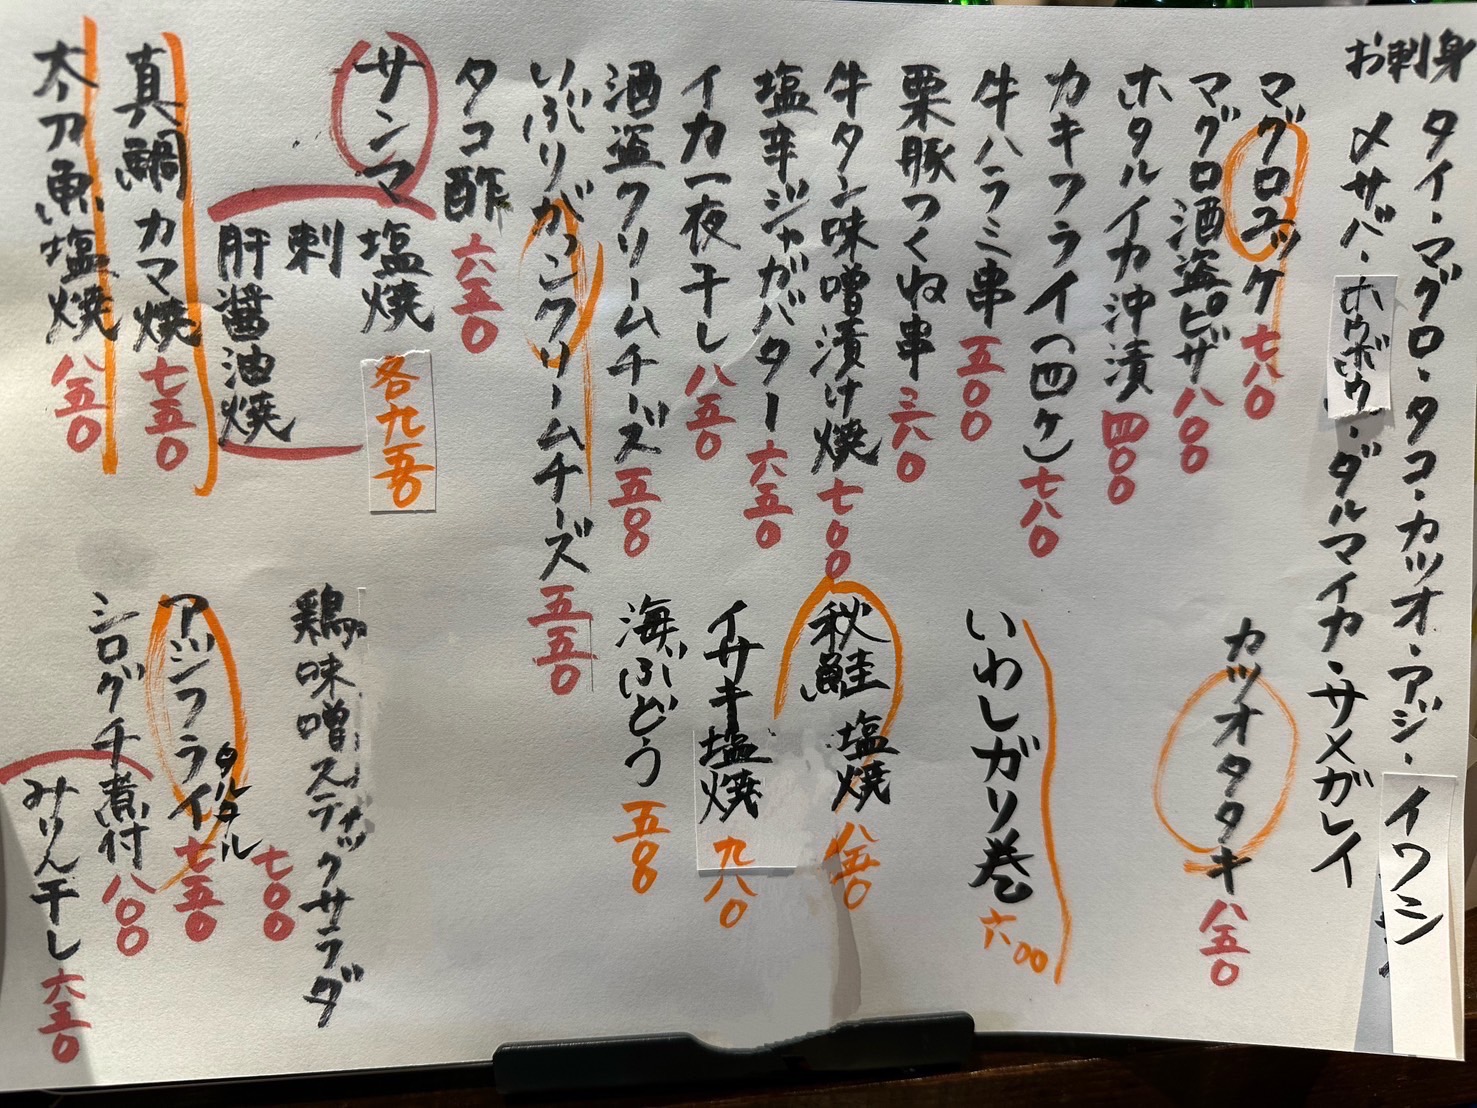 お刺身
タイ・マグロ・タコ・カツオ・アジ・イワシ
〆サバ・ホウボウ・ダルマイカ・サメガレイ
マグロユッケ 七八〇
カツオタタキ 八五〇
マグロ酒盗ピザ 八〇〇
ホタルイカ沖漬 四〇〇
カキフライ(四ケ) 七八〇
牛ハラミ串 五〇〇
いわしガリ巻 六〇〇
栗豚つくね串 三八〇
牛タン味噌漬け焼 七〇〇
秋鮭塩焼 八五〇
塩辛ジャガバター 六五〇
イカ一夜干し 八五〇
イサキ塩焼 九八〇
酒盗クリームチーズ 五五〇
海ぶどう 五五〇
いぶりがっこクリームチーズ 五五〇
タコ酢 六五〇
サンマ
塩焼
刺
肝醤油焼
各九五〇
鶏味噌スティックサラダ 七〇〇
真鯛カマ焼 七五〇
アジフライ タルタル 七五〇
太刀魚塩焼 八五〇
シログチ煮付 八〇〇
みりん干し 六五〇